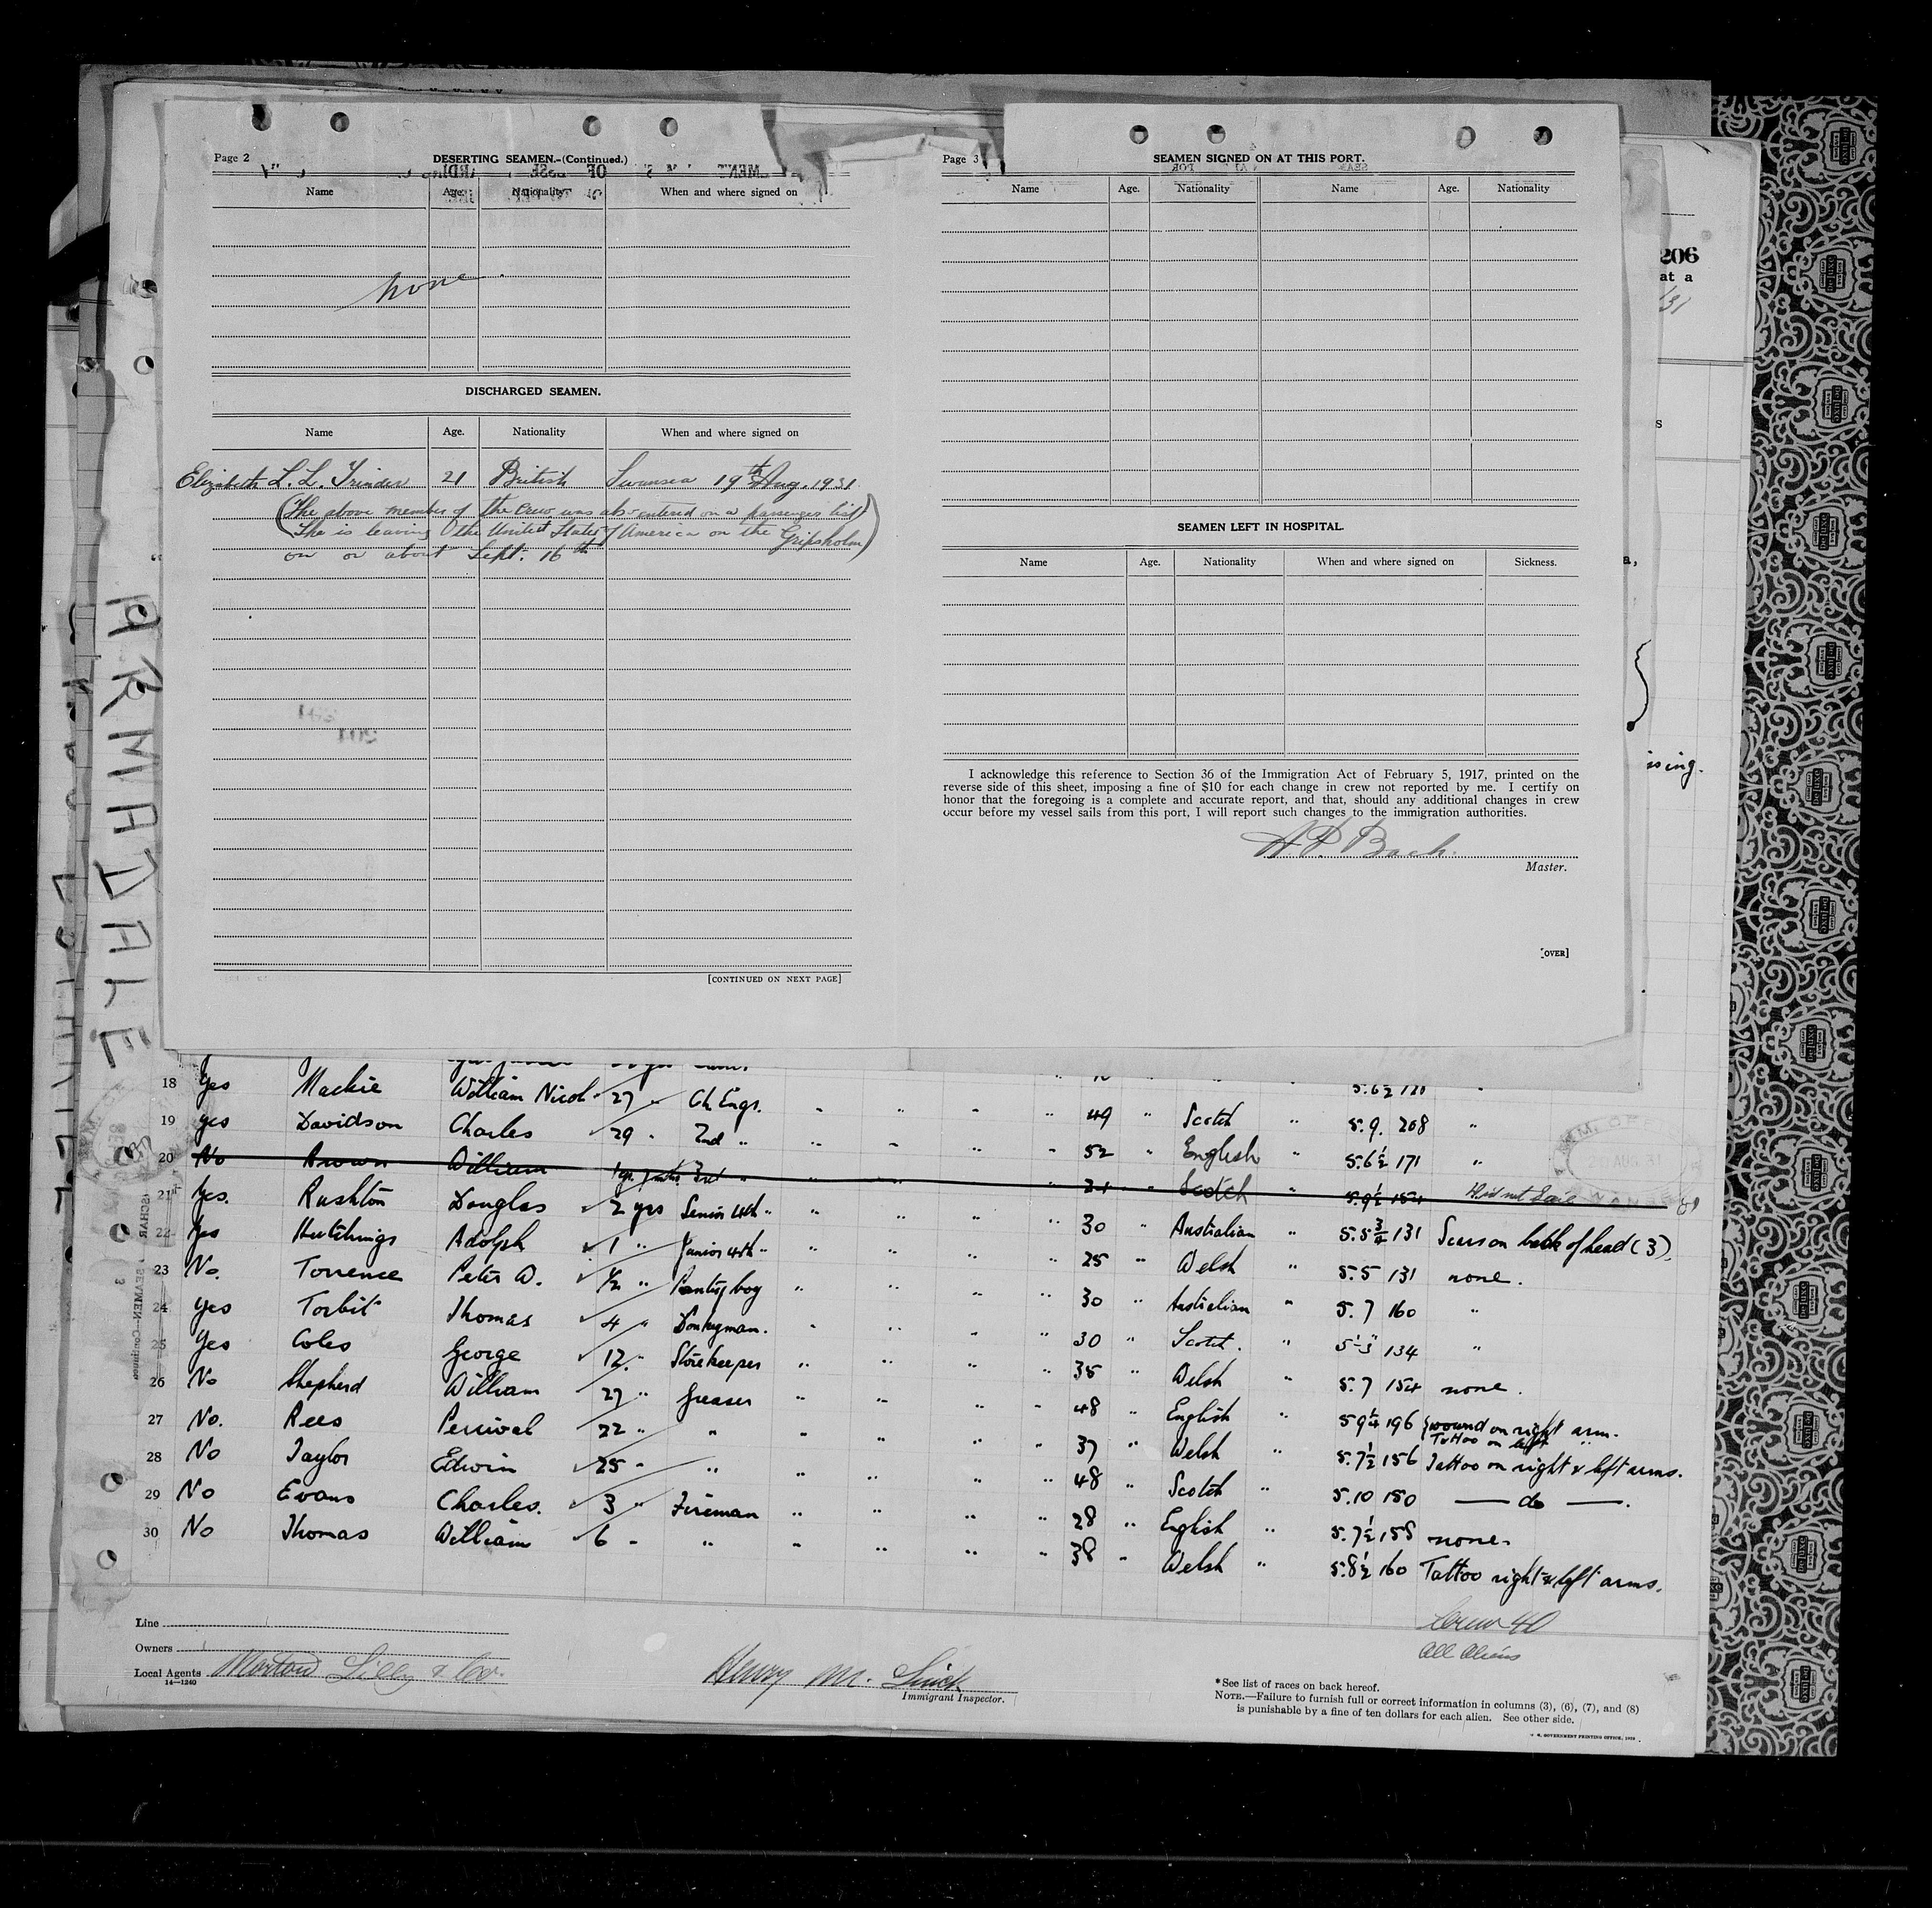 Page 2
DESERTING SEAMEN.-(Continued.)
Name Age. Nationality When and where signed on
none
DISCHARGED SEAMEN.
Name Age. Nationality When and where signed on
Elizabeth L. L. Trinder 21 British Swansea 19th Aug. 1931.
(The above member of the crew was also entered on a passenger list)
(She is leaving the United States of America on the Gripsholm)
on or about Sept. 16th
[CONTINUED ON NEXT PAGE]
Page 3
SEAMEN SIGNED ON AT THIS PORT.
Name Age. Nationality Name Age. Nationality
SEAMEN LEFT IN HOSPITAL.
Name Age. Nationality When and where signed on Sickness.
I acknowledge this reference to Section 36 of the Immigration Act of February 5, 1917, printed on the
reverse side of this sheet, imposing a fine of $10 for each change in crew not reported by me. I certify on
honor that the foregoing is a complete and accurate report, and that, should any additional changes in crew
occur before my vessel sails from this port, I will report such changes to the immigration authorities.
A P. Bach.
Master.
[OVER]
206
at a
ARMADALE
18 Yes Mackie William Nicol 27 " Ch. Engr. " " " " 49 " Scotch " 5.9. 208 "
19 Yes Davidson Charles 29 " 2nd " " " " " 52 " English " 5.6½ 171 "
20 No Brown William 3rd " Scotch " 5.9½ 154 Did not Sail
21 Yes. Rushton Douglas 2 yrs Senior 4th " " " " " 30 " Australian " 5.5¾ 131 Scars on back of head (3).
22 Yes Hutchings Adolph 1 " Junior 4th " " " " " 25 " Welsh " 5.5 131 none.
23 No. Torrence Peter W. ½ " Pantry boy " " " " 30 " Australian " 5.7 160 "
24 Yes Torbit Thomas 4 " Donkeyman. " " " " 30 " Scotch. " 5-3 134 "
25 Yes Coles George 12. " Storekeeper " " " " 35 " Welsh " 5.7 154 none.
26 No Shepherd William 27 " Greaser " " " " 48 " English " 5 9¼ 196 {wound on right arm.
Tattoo on left "
27 No. Rees Percival 22 " " " " " " 37 " Welsh " 5.7½ 156 Tattoo on right & left arms.
28 No Taylor Edwin 25 " " " " " " 48 " Scotch " 5.10 150 — do —.
29 No Evans Charles. 3 " Fireman " " " " 28 " English " 5.7½ 158 none.
30 No Thomas William 6 " " " " " " 38 " Welsh " 5.8½ 160 Tattoo right & left arms.
Crew 40
All Aliens
Line
Owners
Local Agents Morton Lilly & Co.
14—1240
Immigrant Inspector.
*See list of races on back hereof.
NOTE.—Failure to furnish full or correct information in columns (3), (6), (7), and (8)
is punishable by a fine of ten dollars for each alien. See other side.